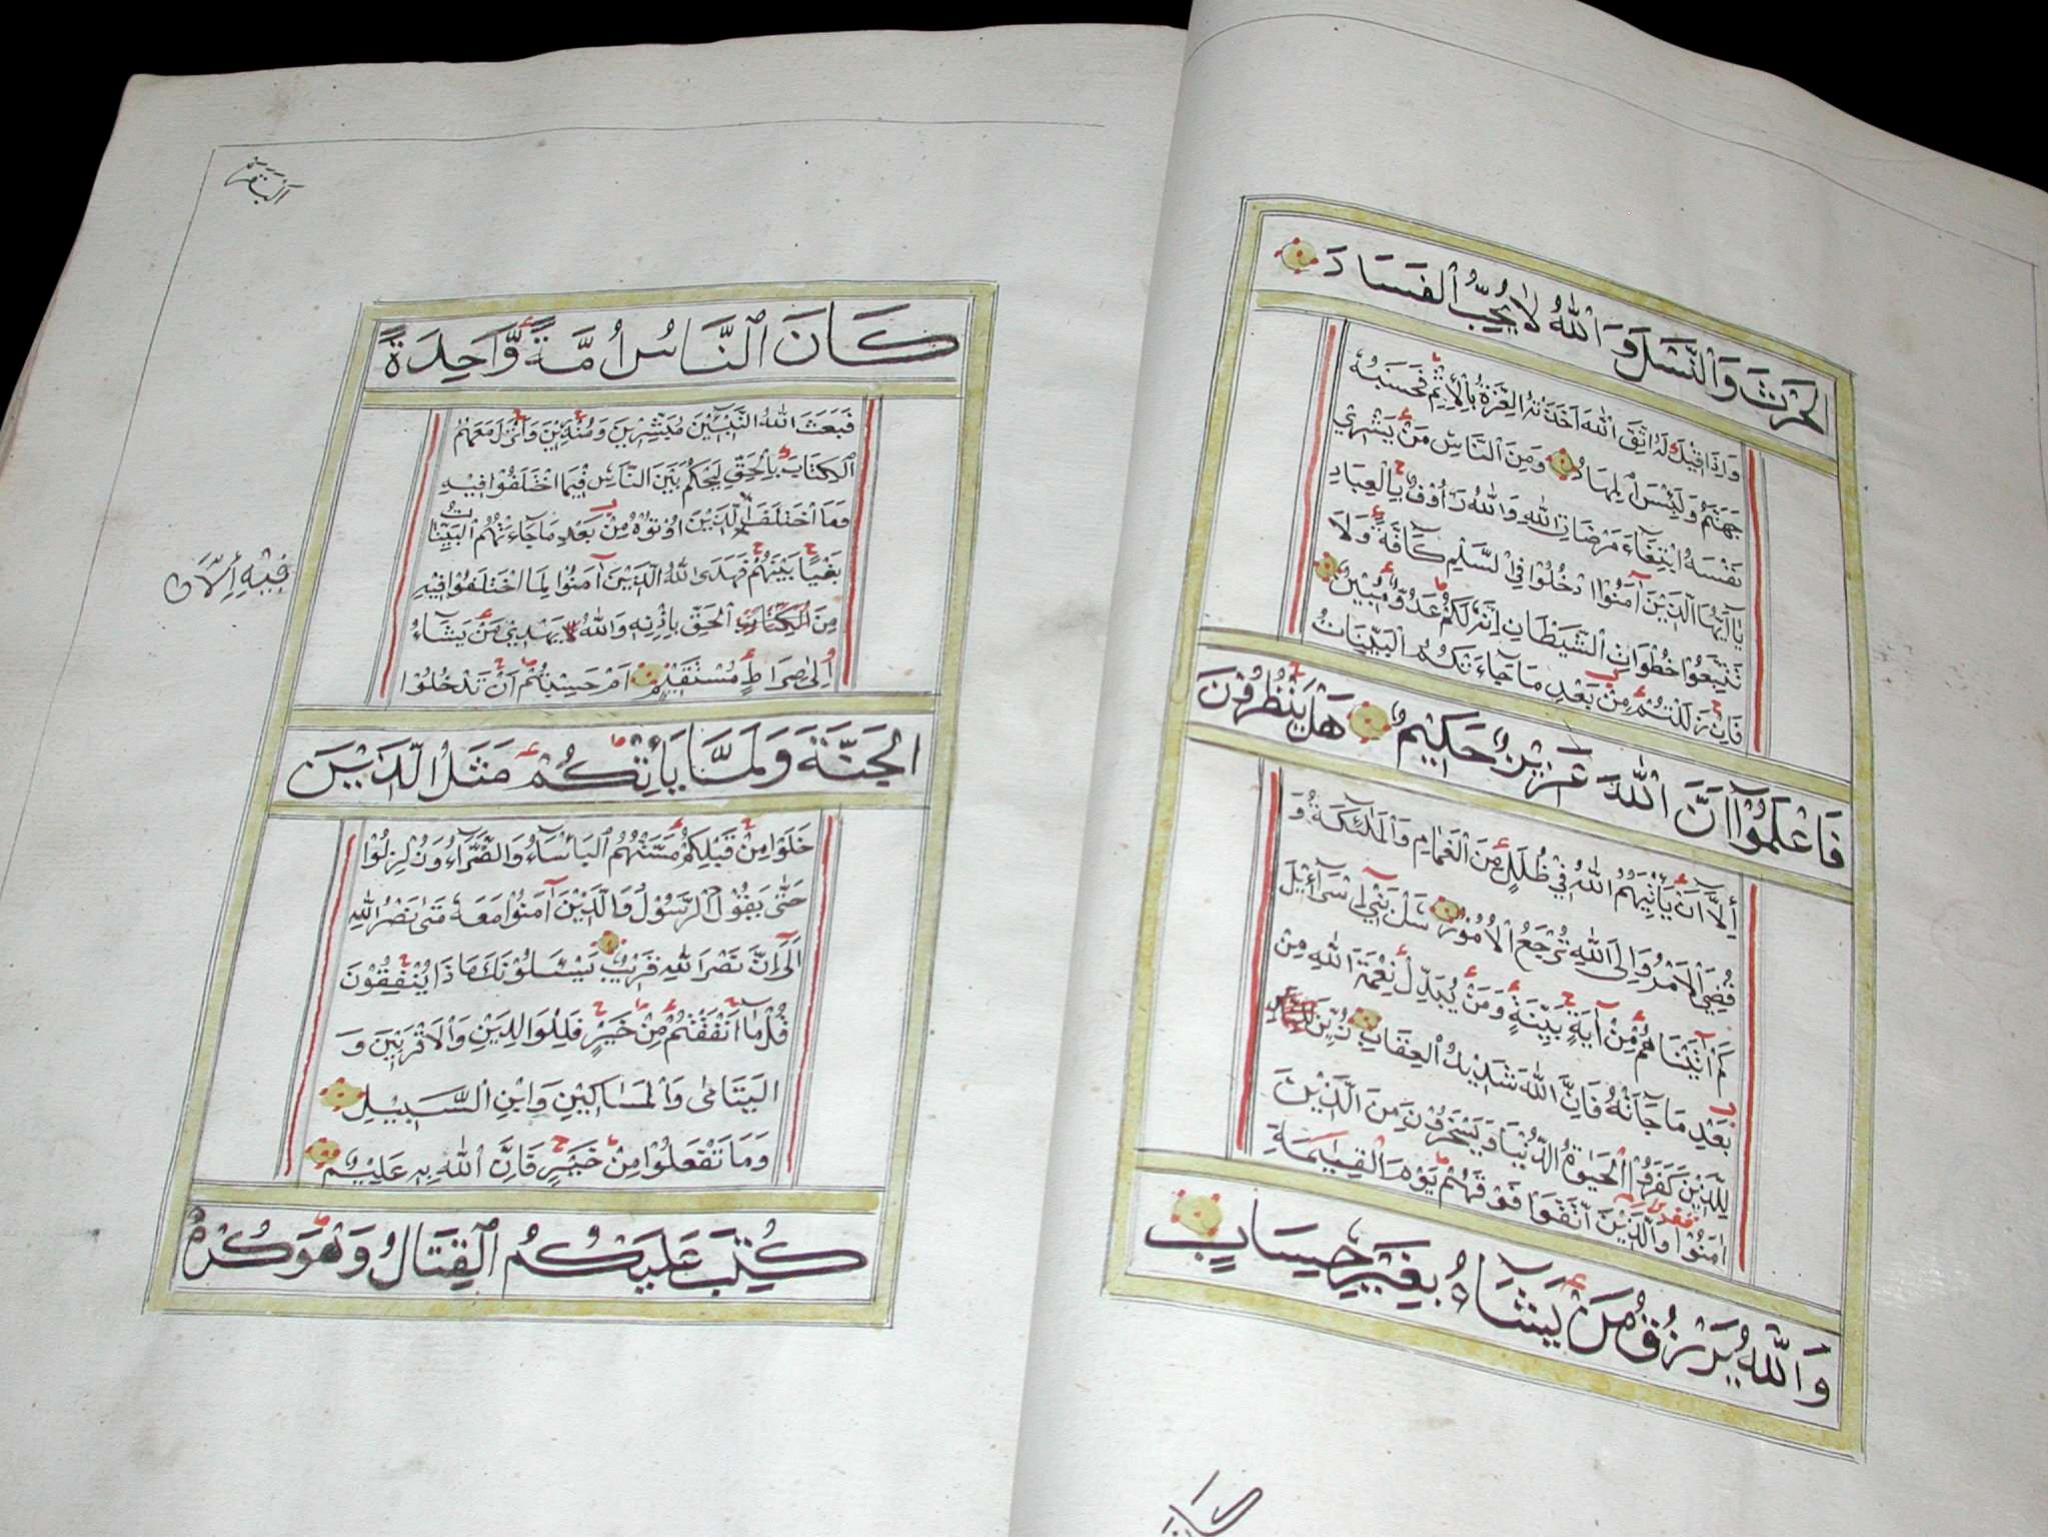 الحَرْثَ وَالنَّسْلَ وَاللهُ لَا يُحِبُّ الفَسَادَ
وَاِذَا قِيْلَ لَهُ اتَّقِ اللهَ اَخَذَتْهُ العِزَّةُ بِالاِثْمِ فَحَسْبُهُ
جَهَنَّمُ وَلَبِئْسَ المِهَادُ وَمِنَ النَّاسِ مَنْ يَشْرِيْ
نَفْسَهُ ابْتِغَآءَ مَرْضَاتِ اللهِ وَاللهُ رَاُوْفٌ بِالعِبَادِ
يَآاَيُّهَا الَّذِيْنَ آمَنُوْا ادْخُلُوْا فِي السِّلْمِ كَآفَّةً وَلَا
تَتَّبِعُوْا خُطُوَاتِ الشَّيْطَانِ اِنَّهُ لَكُمْ عَدُوٌّ مُّبِيْنٌ
فَاِنْ زَلَلْتُمْ مِّنْ بَعْدِ مَا جَآءَتْكُمُ البَيِّنَاتُ
فَاعْلَمُوْآ اَنَّ اللهَ عَزِيْزٌ حَكِيْمٌ هَلْ يَنْظُرُوْنَ
اِلَّآ اَنْ يَّاْتِيَهُمُ اللهُ فِيْ ظُلَلٍ مِّنَ الْغَمَامِ وَالْمَلٰٓئِكَةُ وَ
قُضِيَ الْاَمْرُ وَاِلَى اللهِ تُرْجَعُ الْاُمُوْرُ سَلْ بَنِيْٓ اِسْرَآئِيْلَ
كَمْ آتَيْنَاهُمْ مِّنْ آيَةٍ بَيِّنَةٍ وَمَنْ يُّبَدِّلْ نِعْمَةَ اللهِ مِنْ
بَعْدِ مَا جَآءَتْهُ فَاِنَّ اللهَ شَدِيْدُ الْعِقَابِ زُيِّنَ
لِلَّذِيْنَ كَفَرُوْا الْحَيٰوةُ الدُّنْيَا وَيَسْخَرُوْنَ مِنَ الَّذِيْنَ
اٰمَنُوْا وَالَّذِيْنَ اتَّقَوْا فَوْقَهُمْ يَوْمَ الْقِيٰمَةِ
وَاللهُ يَرْزُقُ مَنْ يَّشَآءُ بِغَيْرِ حِسَابٍ
كان
البقرة
كَانَ النَّاسُ اُمَّةً وَّاحِدَةً
فَبَعَثَ اللهُ النَّبِيِّيْنَ مُبَشِّرِيْنَ وَمُنْذِرِيْنَ وَاَنْزَلَ مَعَهُمُ
الْكِتَابَ بِالْحَقِّ لِيَحْكُمَ بَيْنَ النَّاسِ فِيْمَا اخْتَلَفُوْا فِيْهِ
وَمَا اخْتَلَفَ الَّذِيْنَ اُوْتُوْهُ مِنْ بَعْدِ مَا جَآءَتْهُمُ البَيِّنَاتُ
فِيْهِ إِلَّا
بَغْيًا بَيْنَهُمْ فَهَدَى اللهُ الَّذِيْنَ آمَنُوْا لِمَا اخْتَلَفُوْا فِيْهِ
مِنَ الْكِتَابِ الْحَقِّ بِاِذْنِهِ وَاللهُ يَهْدِيْ مَنْ يَّشَآءُ
اِلٰى صِرَاطٍ مُّسْتَقِيْمٍ اَمْ حَسِبْتُمْ اَنْ تَدْخُلُوْا
الْجَنَّةَ وَلَمَّا يَاْتِكُمْ مَّثَلُ الَّذِيْنَ
خَلَوْا مِنْ قَبْلِكُمْ مَّسَّتْهُمُ الْبَاْسَآءُ وَالضَّرَّآءُ وَزُلْزِلُوْا
حَتّٰى يَقُوْلَ الرَّسُوْلُ وَالَّذِيْنَ آمَنُوْا مَعَهُ مَتٰى نَصْرُ اللهِ
اَلَآ اِنَّ نَصْرَ اللهِ قَرِيْبٌ يَسْئَلُوْنَكَ مَاذَا يُنْفِقُوْنَ
قُلْ مَآ اَنْفَقْتُمْ مِّنْ خَيْرٍ فَلِلْوَالِدَيْنِ وَالْاَقْرَبِيْنَ وَ
الْيَتَامٰى وَالْمَسَاكِيْنِ وَابْنِ السَّبِيْلِ
وَمَا تَفْعَلُوْا مِنْ خَيْرٍ فَاِنَّ اللهَ بِهِ عَلِيْمٌ
كُتِبَ عَلَيْكُمُ الْقِتَالُ وَهُوَ كُرْهٌ